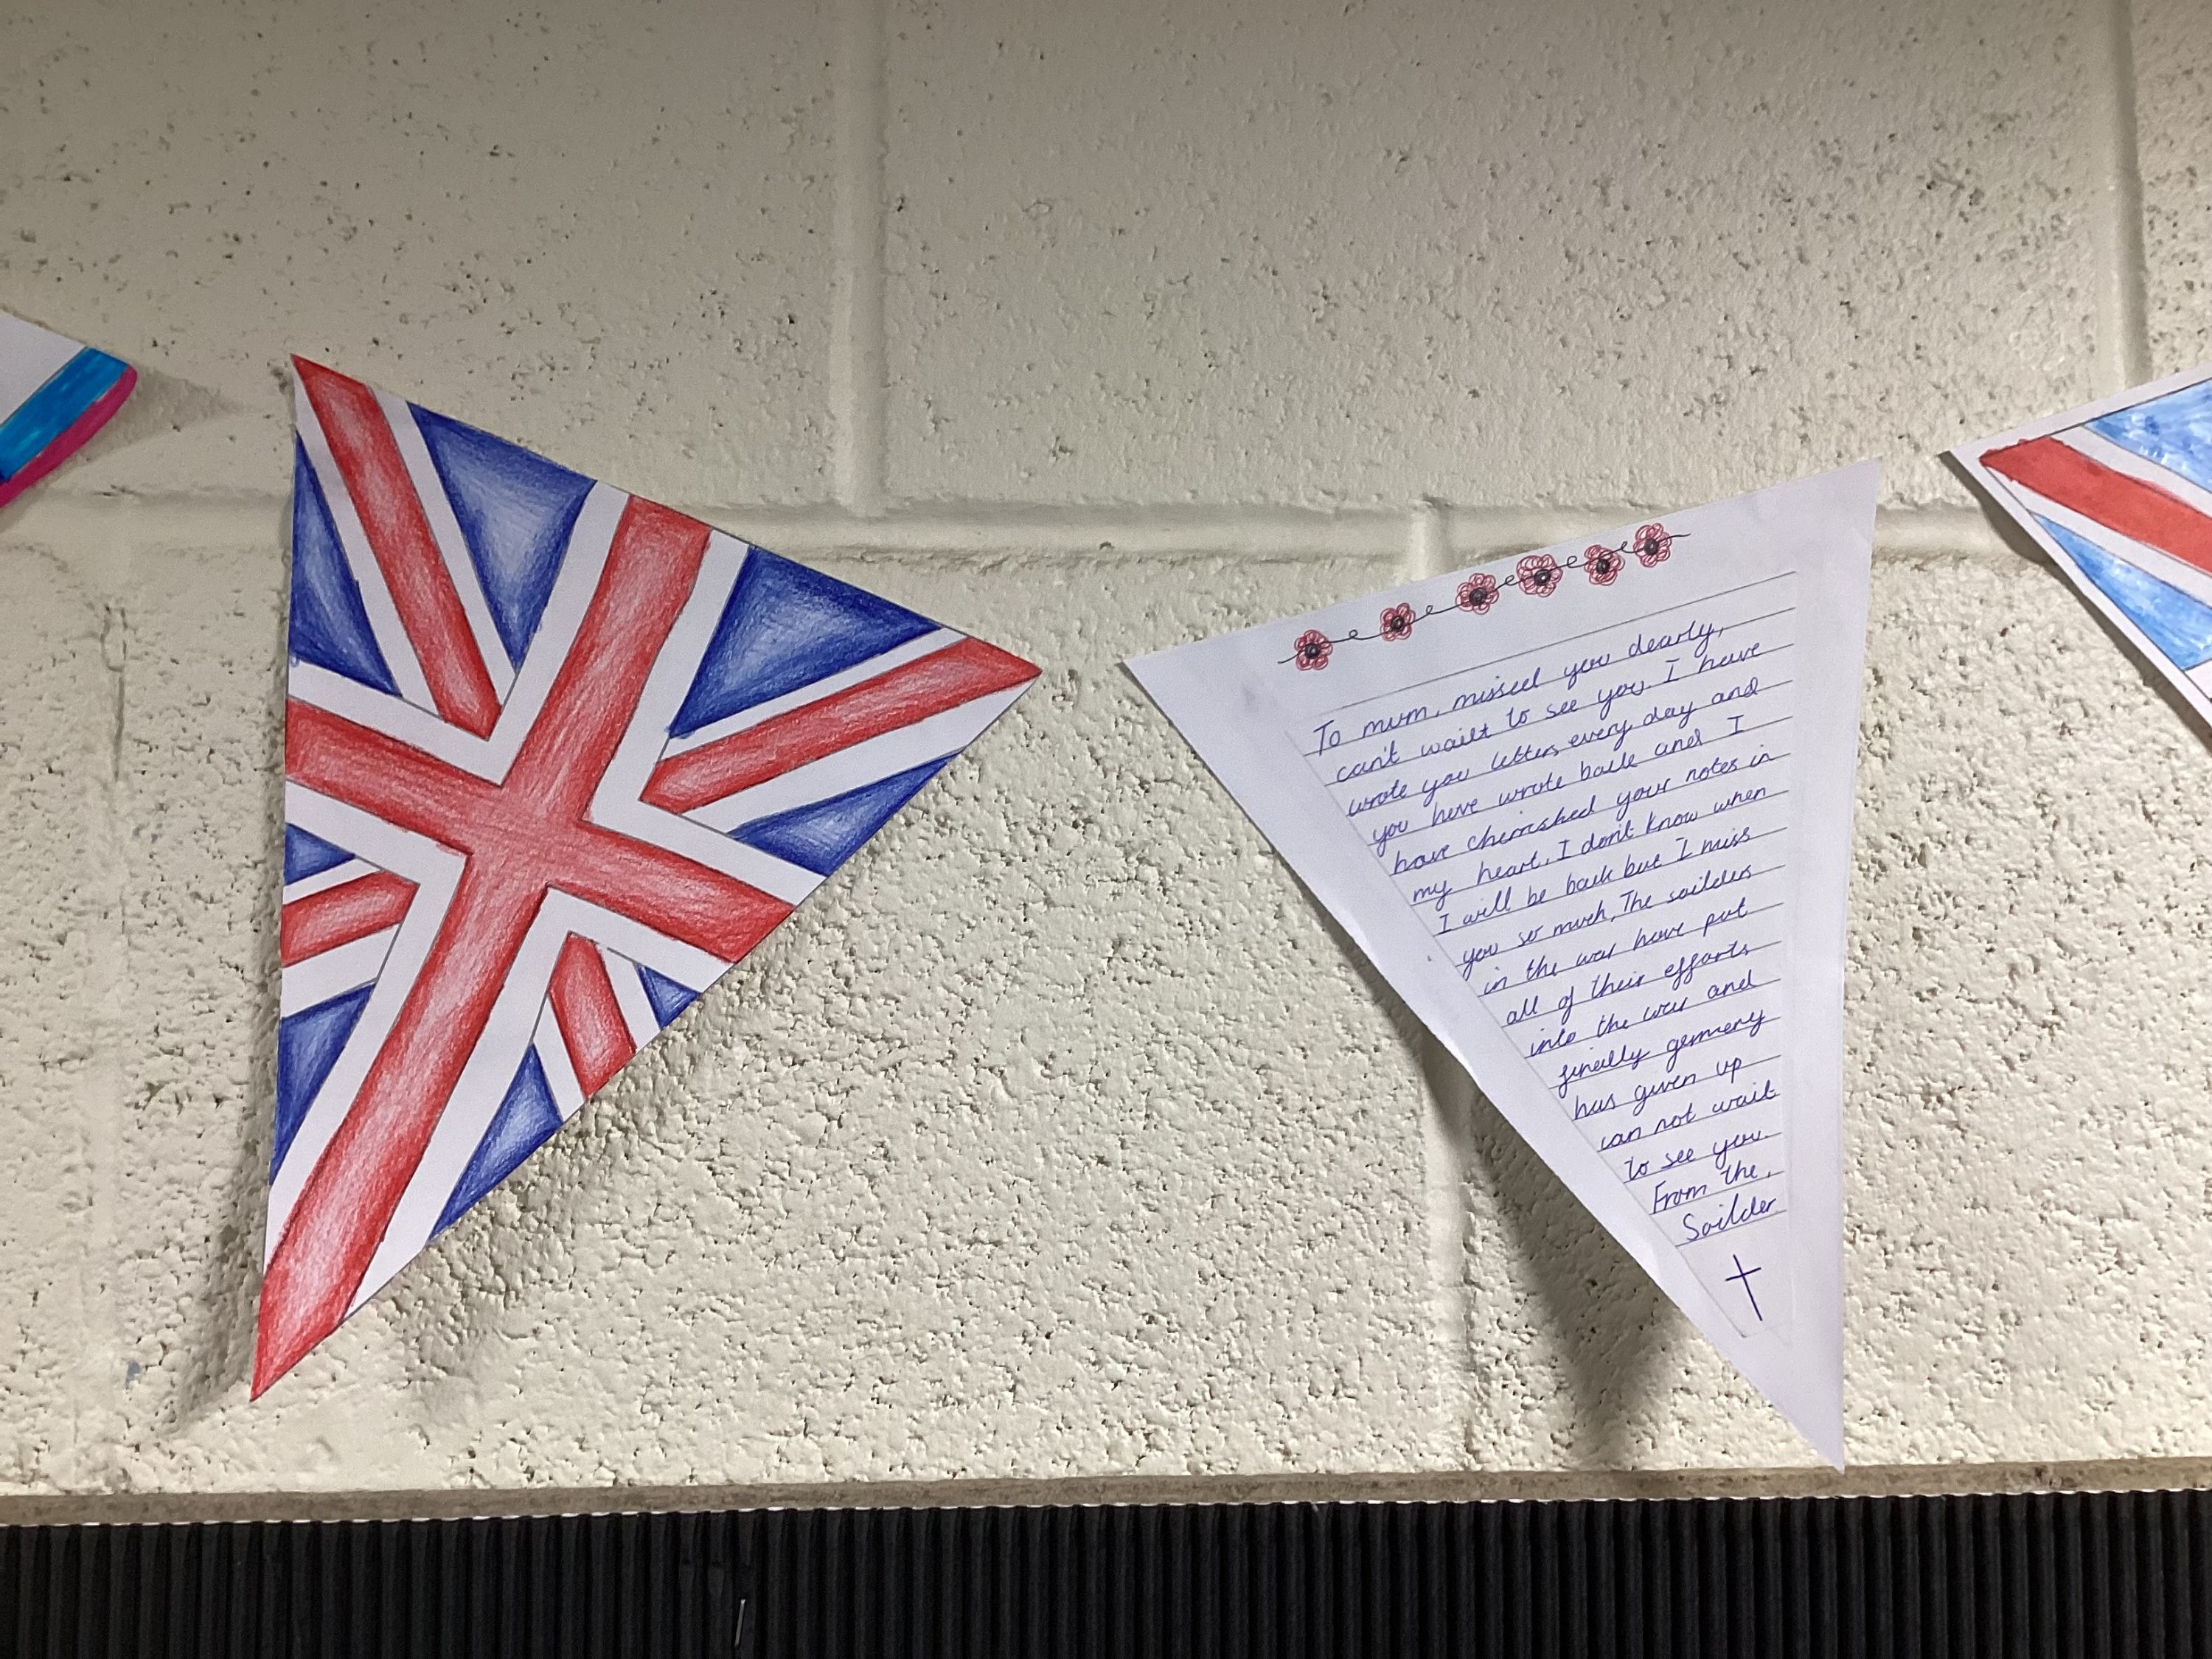 To mum, missed you dearly,
can't wait to see you I have
wrote you letters every day and
you have wrote back and I
have cherished your notes in
my heart, I don't know when
I will be back but I miss
you so much, The soilders
in the war have put
all of their efforts
into the war and
finally germeny
has given up
can not wait
to see you.
From the,
Soilder